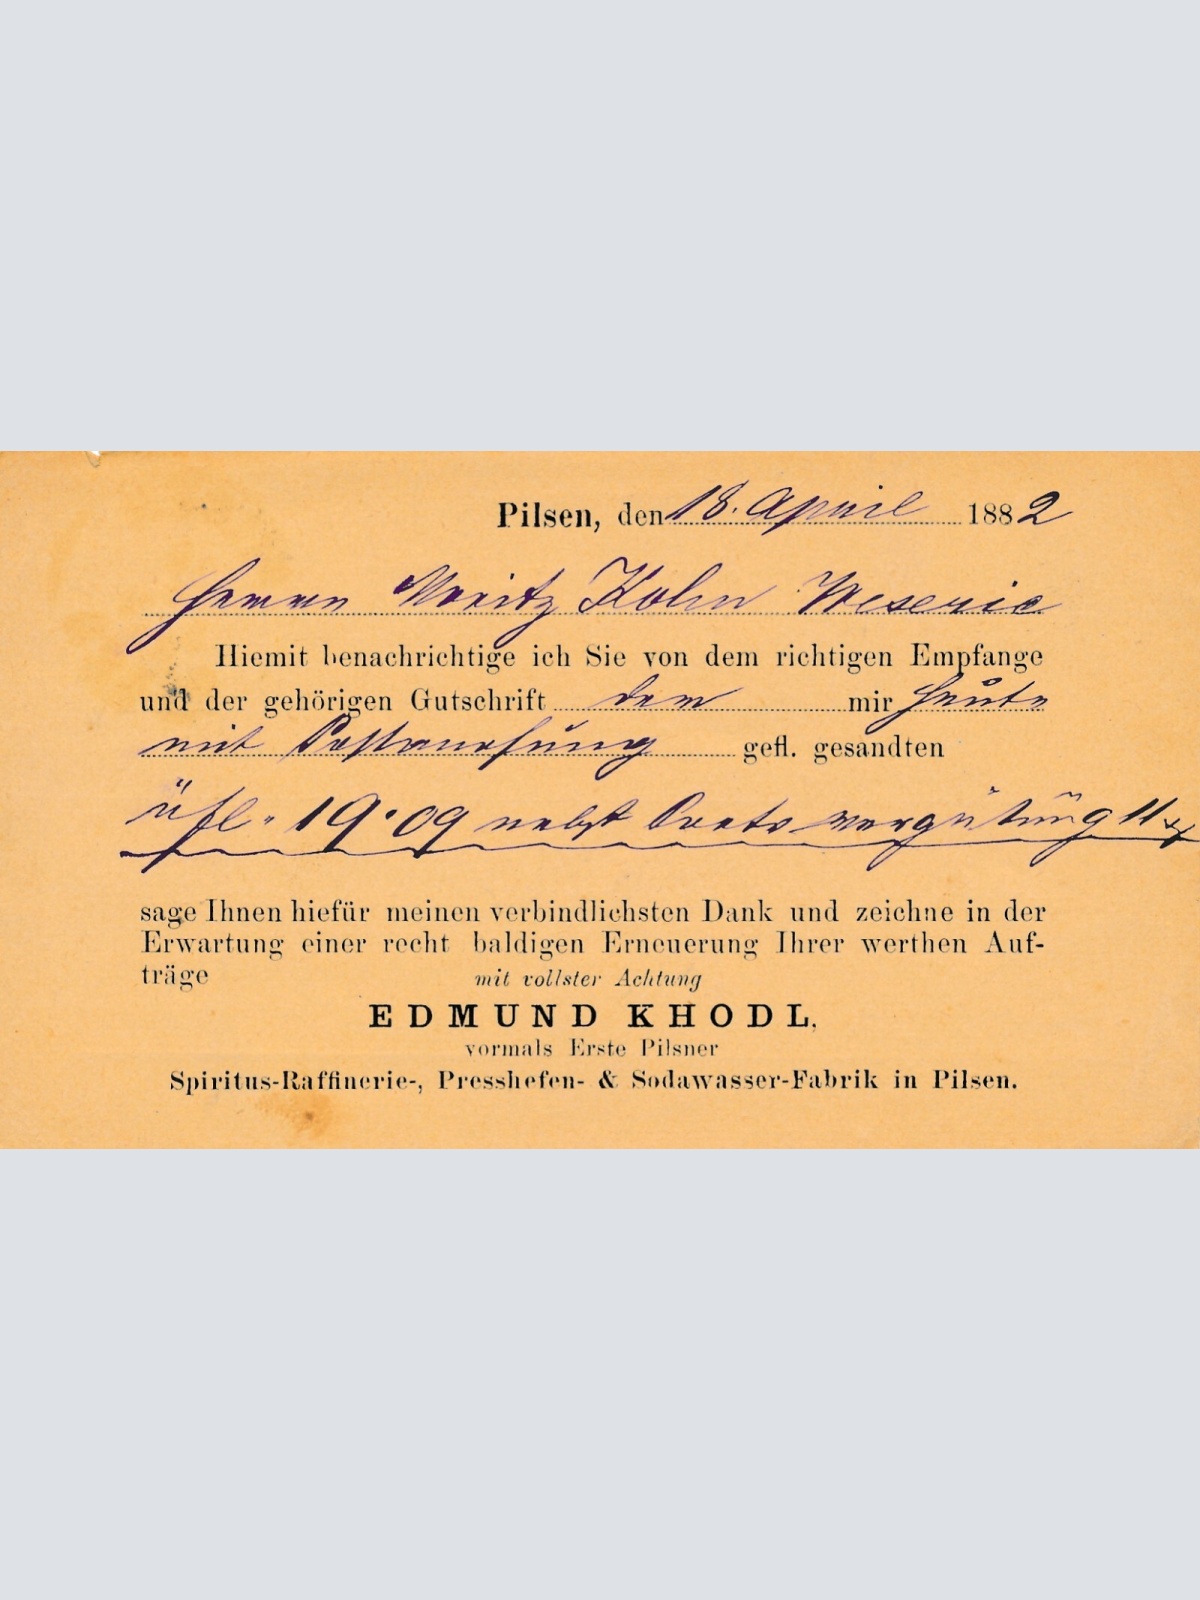 Pilsen, den 18. April 1882
Herrn Moritz Kohn Weseric
Hiemit benachrichtige ich Sie von dem richtigen Empfange
und der gehörigen Gutschrift der mir heute
mit Postanweisung gefl. gesandten
öfl. 19·09 nebst Porto vergütung 11 x
sage Ihnen hiefür meinen verbindlichsten Dank und zeichne in der
Erwartung einer recht baldigen Erneuerung Ihrer werthen Auf-
träge mit vollster Achtung
EDMUND KHODL,
vormals Erste Pilsner
Spiritus-Raffinerie-, Presshefen- & Sodawasser-Fabrik in Pilsen.